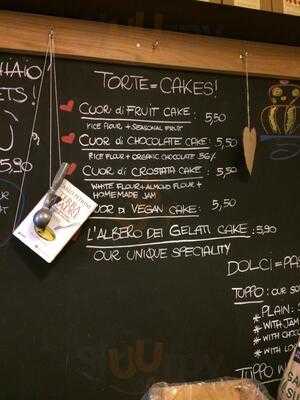 TORTE = CAKES!
CUOR di FRUIT CAKE: 5,50
RICE FLOUR + SEASONAL FRUIT
CUOR di CHOCOLATE CAKE: 5,50
RICE FLOUR + ORGANIC CHOCOLATE 56%
CUOR di CROSTATA CAKE: 5,50
WHITE FLOUR + ALMOND FLOUR +
HOMEMADE JAM
CUOR DI VEGAN CAKE: 5,50
L'ALBERO DEI GELATI CAKE: 5,90
OUR UNIQUE SPECIALITY
5,90
DOLCI = PAS
TUPPO: OUR SO
* PLAIN:
* WITH JAM
* WITH CHOC
* WITH
TUPPO W